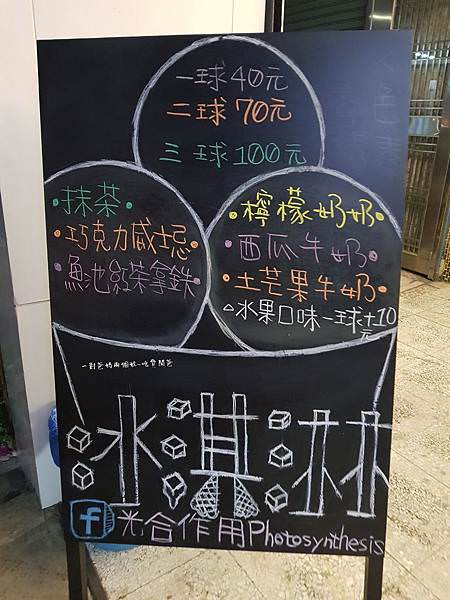 一球40元
二球70元
三球100元
·抹茶·
·巧克力威士忌·
魚池紅茶拿鐵·
·檸檬奶奶·
·西瓜牛奶·
·土芒果牛奶·
△水果口味一球+10元
冰淇林
f 光合作用Photosynthesis